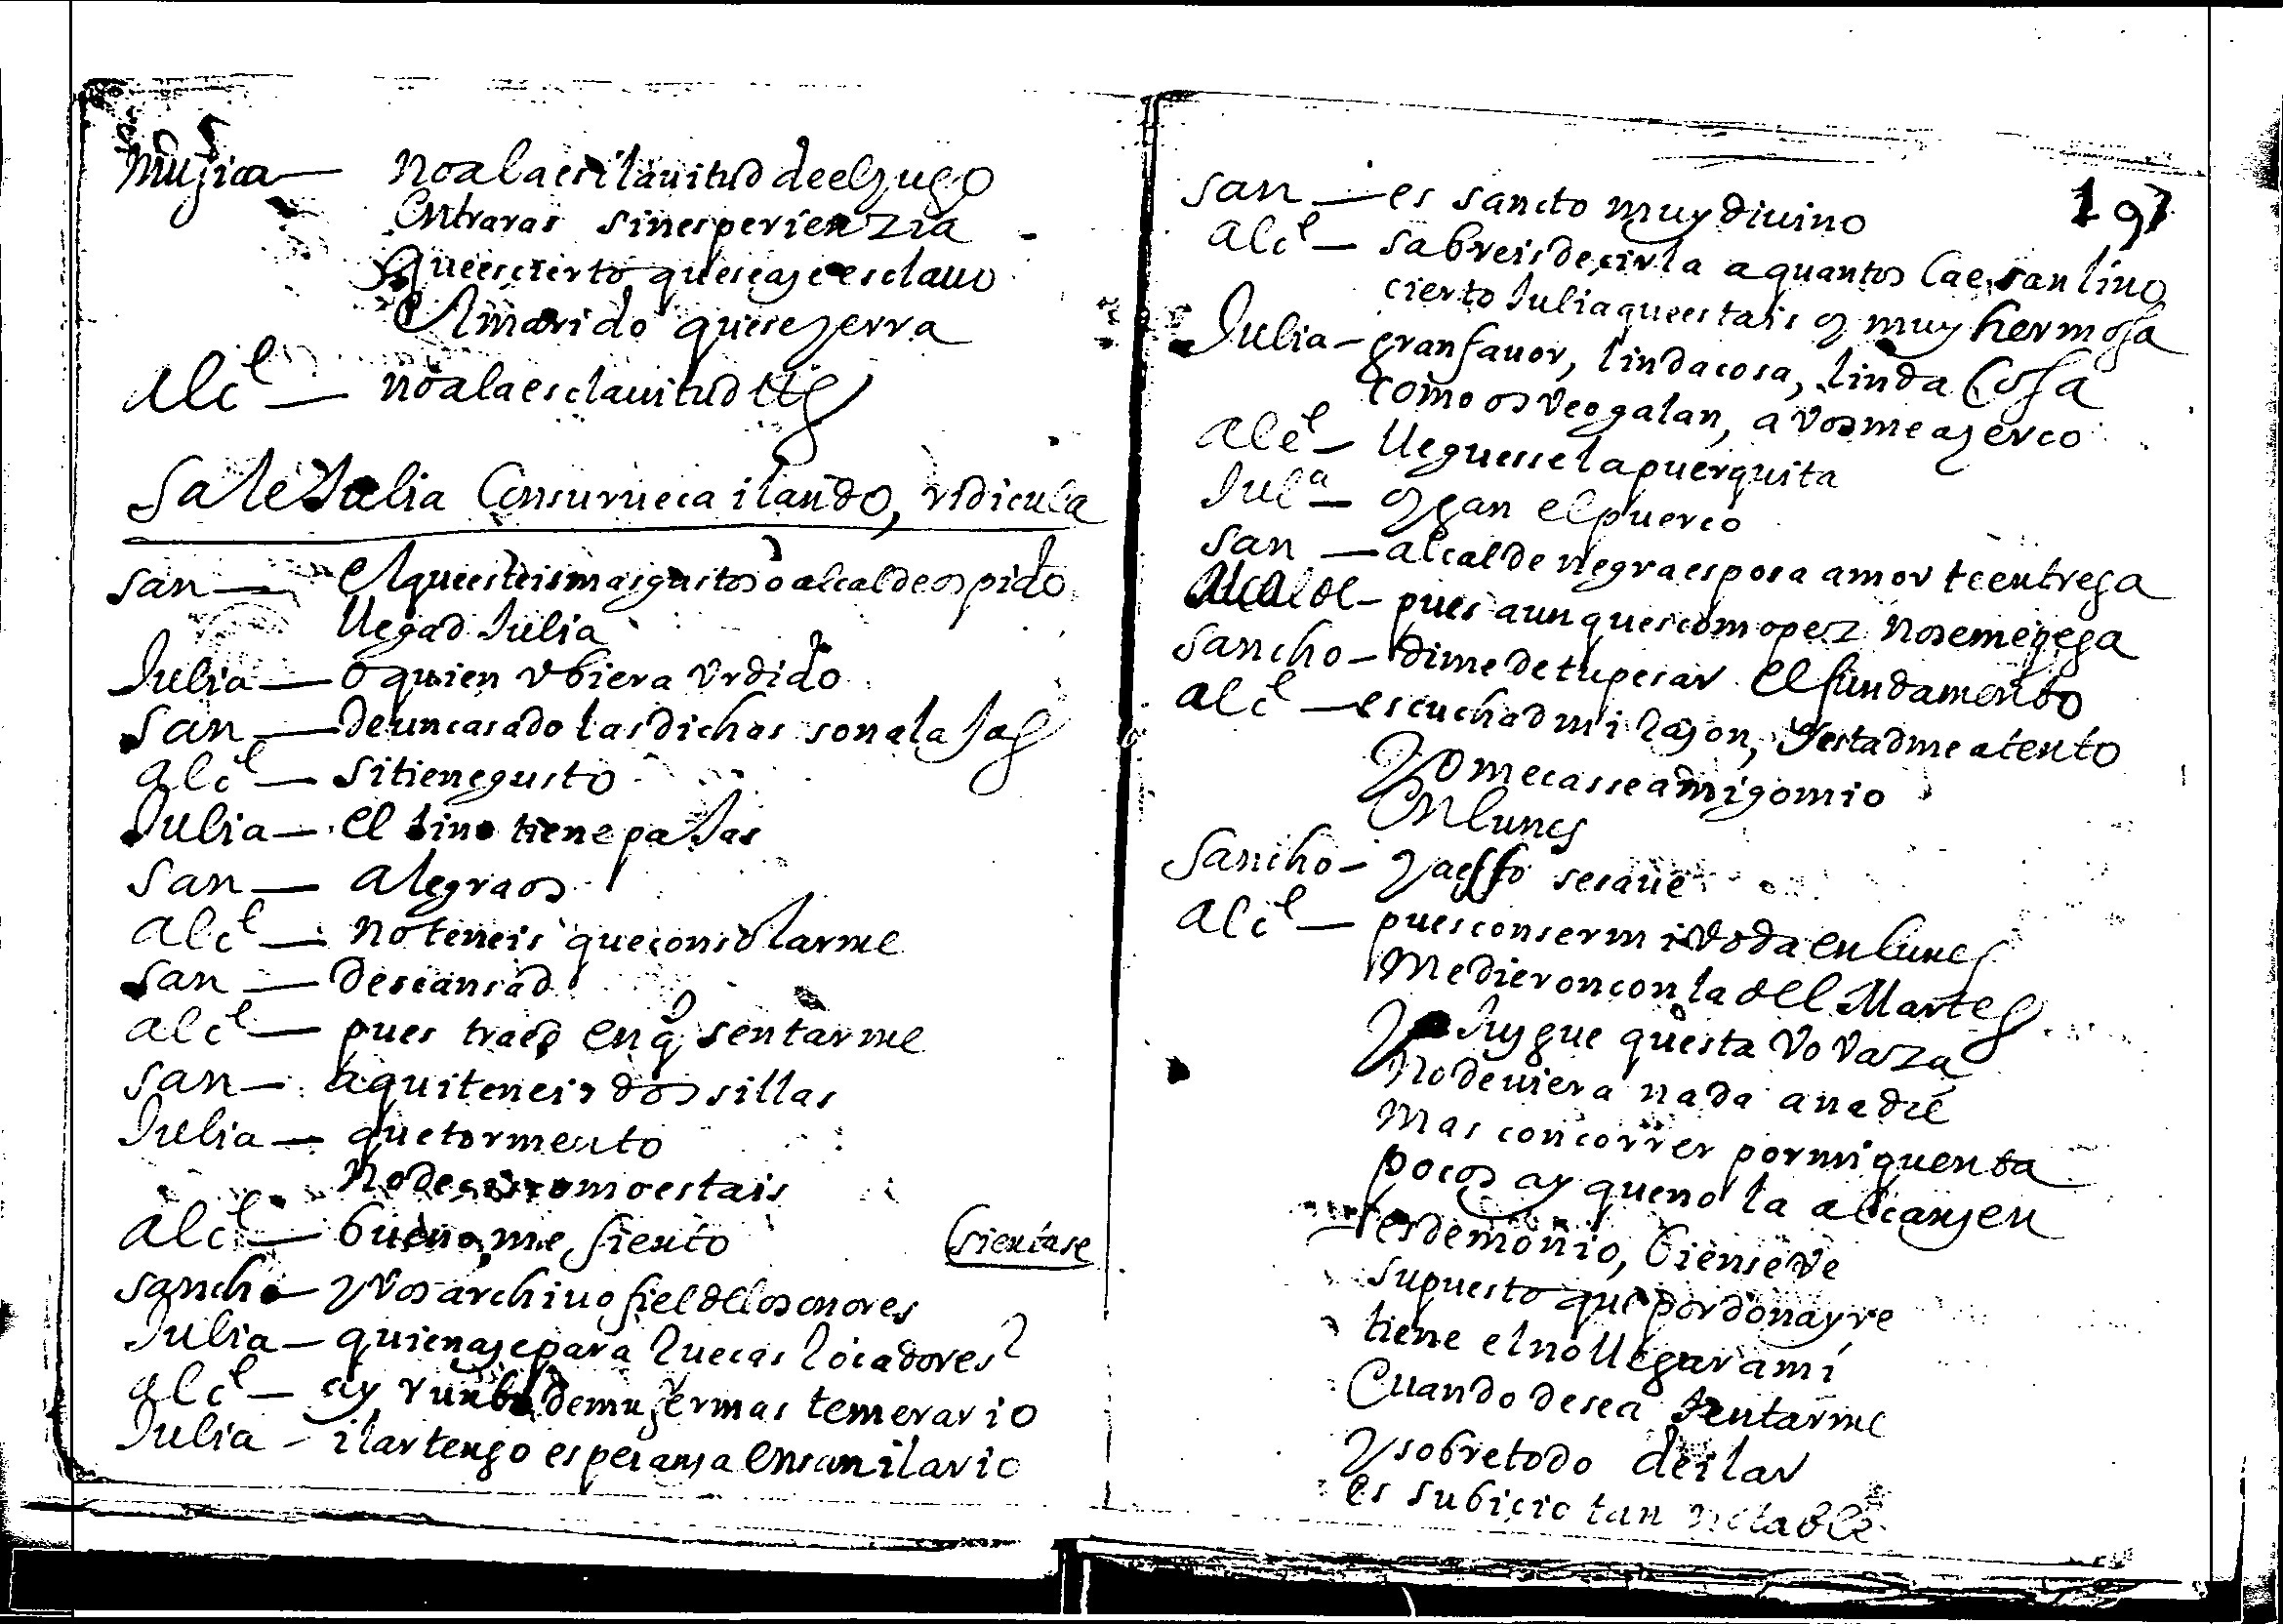 Musica — no a la esclauitud de el jugo
Entraras sin esperienzia
Que es cierto que se aze esclauo
El marido que se yerra
alce — no a la esclauitud ettz
Sale Julia Con su rueca ilando, ridicula
san — el que esteis mas gustoso alcalde os pido
llegad Julia
Julia — o quien vbiera vrdido
san — de un casado las dichas son alajas
alce — si tiene gusto
Julia — el lino tiene pajas
san — alegraos
alce — no teneis que consolarme
san — descansad
alce — pues traed en q sentarme
san — aqui teneis dos sillas
Julia — que tormento
no decis como estais
alce — bueno, me siento
sientase
sancho — y vos archiuo fiel de los onores
Julia — quien aze para ruecas rocadores
alce — ay rumbo de mujer mas temerario
Julia — ilar tengo esperansa en san ilario
197
san — es sancto muy diuino
alce — sabreis decirla a quantos Cae san lino
cierto Julia que estais oy muy hermosa
Julia — gran fauor, linda cosa, linda Cosa
como os veo galan, a vos me azerco
alce — lleguesse la puerquita
Jula — oygan el puerco
san — alcalde vegra esposa amor te entrega
Alcalde — pues aunque es como pez no se me pega
sancho — dime de tu pesar el fundamento
alce — escuchad mi razon, y estadme atento
Yo me casse amigo mio
En lunes
Sancho — ya esso se saue
alce — pues con ser mi voda en lunes
Me dieron con la del Martes
Yo juzgue que sta vo vaza
No deuiera nada a nadie
Mas con correr por mi quenta
pocos ay que no la alcanzen
es demonio, bien se ve
supuesto que por donayre
tiene el no llegar a mi
Cuando desea sentarme
y sobre todo de ilar
es su bicio tan notable